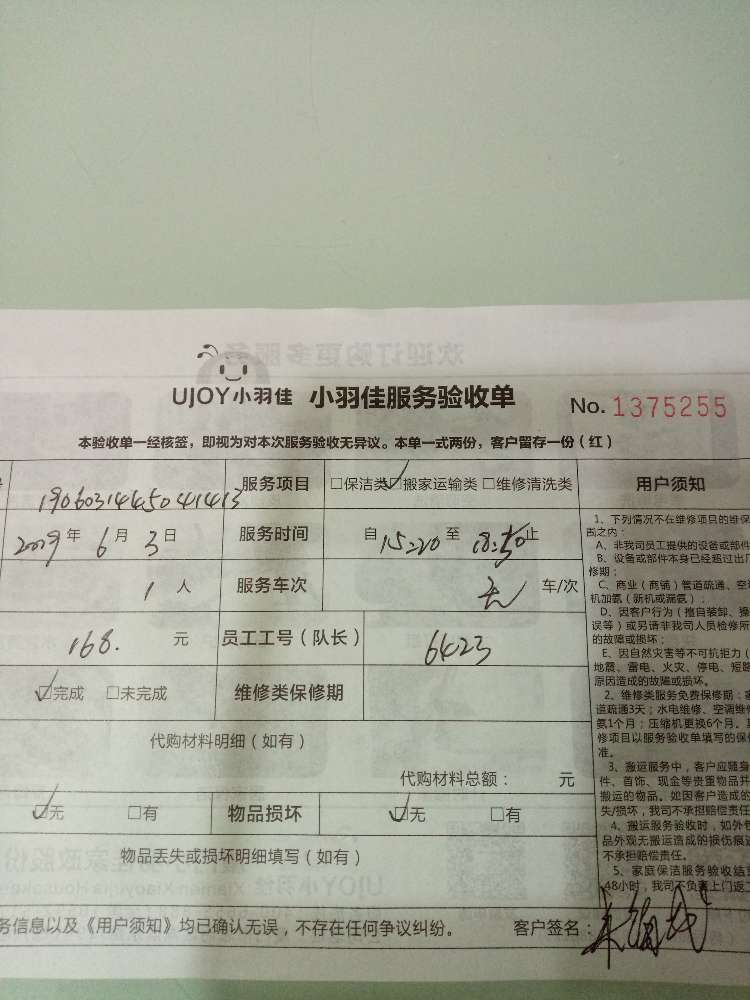 UJOY小羽佳 小羽佳服务验收单 No. 1375255
本验收单一经核签，即视为对本次服务验收无异议。本单一式两份，客户留存一份（红）
服务项目 □保洁类 ☑搬家运输类 □维修清洗类 用户须知
2019年6月3日 服务时间 自 至 18:50止
1人 服务车次 无 车/次
168. 元 员工工号（队长） 6423
☑完成 □未完成 维修类保修期
代购材料明细（如有）
代购材料总额： 元
☑无 □有 物品损坏 ☑无 □有
物品丢失或损坏明细填写（如有）
务信息以及《用户须知》均已确认无误，不存在任何争议纠纷。 客户签名：
1、下列情况不在维修项目的维保
围之内：
A、非我司员工提供的设备或部件
B、设备或部件本身已经超过出厂
修期；
C、商业（商铺）管道疏通、空
机加氨（新机或漏氨）；
D、因客户行为（擅自装卸、操
误等）或另请非我司人员检修所
的故障或损坏；
E、因自然灾害等不可抗拒力（
地震、雷电、火灾、停电、短路
原因造成的故障或损坏。
2、维修类服务免费保修期：
道疏通3天；水电维修、空调维
氨1个月；压缩机更换6个月。
修项目以服务验收单填写的保
准。
3、搬运服务中，客户应随身
件、首饰、现金等贵重物品并
搬运的物品。如因客户造成的
失/损坏，我司不承担赔偿责任
4、搬运服务验收时，如外包
品外观无搬运造成的损伤痕迹
不承担赔偿责任。
5、家庭保洁服务验收结
48小时，我司不负责上门返工